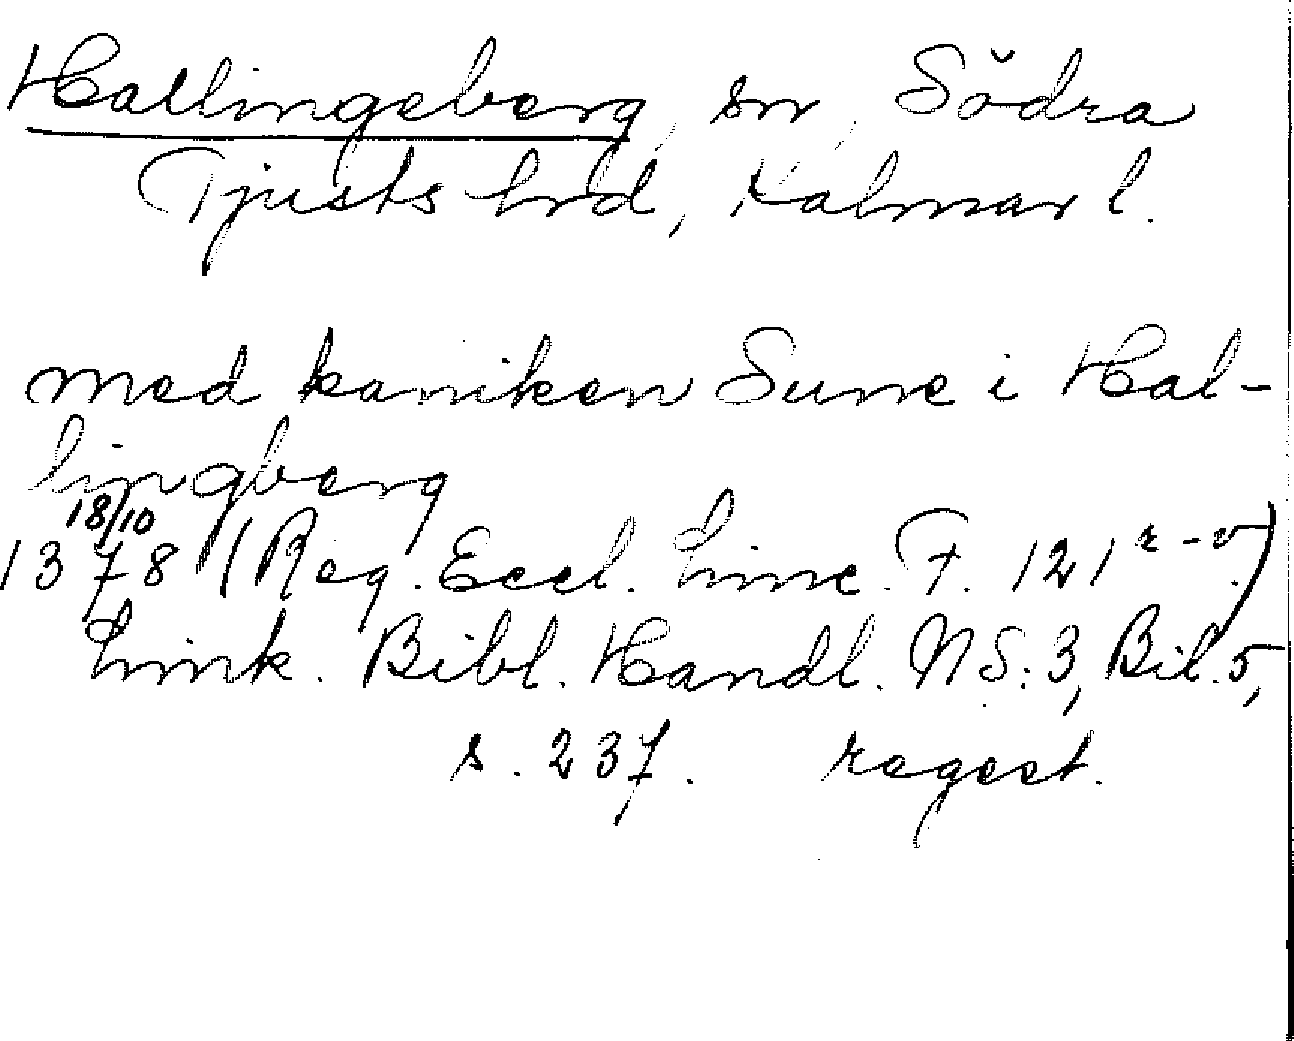 Hallingeberg, sn, Södra
Tjusts hrd, Kalmar l.
med kaniken Sune i Hal-
lingberg
18/10
1378 (Reg. Eccl. Linc. F. 121 r-v)
Link. Bibl. Handl. NS: 3, Bil. 5,
s. 237. regest.